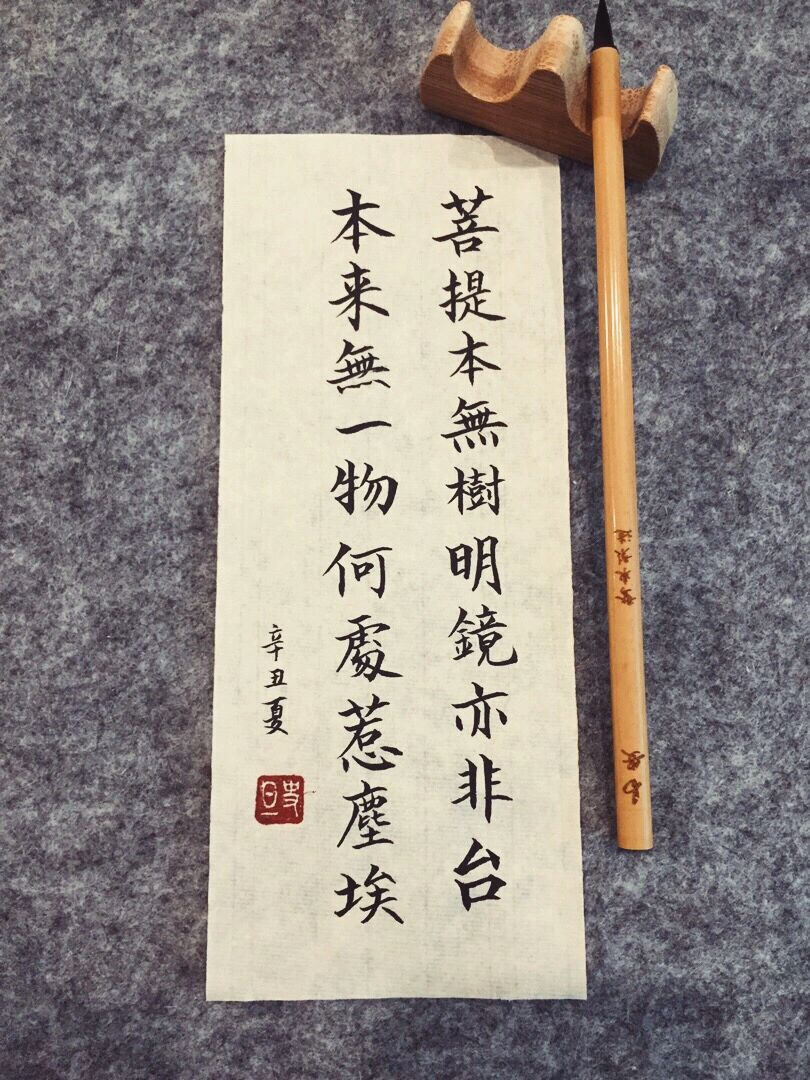 菩提本無樹明鏡亦非台
本来無一物何處惹塵埃
辛丑夏